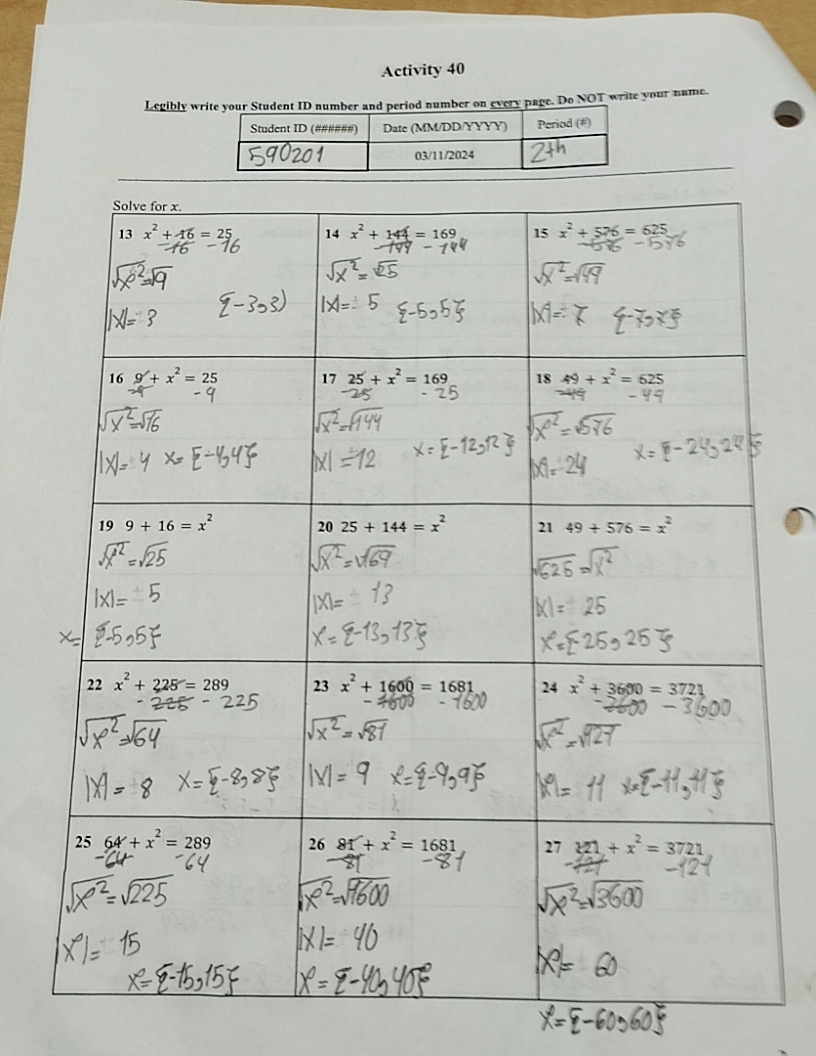 Activity 40
Legibly write your Student ID number and period number on every page. Do NOT write your name.
Student ID (######) Date (MM/DD/YYYY) Period (#)
590201 03/11/2024 2th
Solve for x.
13 x² + 16 = 25
-16 -16
√x²=√9
|x|= 3 {-3,3}
14 x² + 144 = 169
-144 -144
√x²=√25
|x|= 5 {-5,5}
15 x² + 576 = 625
-576 -576
√x²=√49
|x|= 7 {-7,7}
16 9 + x² = 25
-9 -9
√x²=√16
|x|= 4 x={-4,4}
17 25 + x² = 169
-25 -25
√x²=√144
|x|=12 x={-12,12}
18 49 + x² = 625
-49 -49
√x²=√576
|x|=24 x={-24,24}
19 9 + 16 = x²
√x²=√25
|x|= 5
x= {-5,5}
20 25 + 144 = x²
√x²=√169
|x|= 13
x={-13,13}
21 49 + 576 = x²
√625=√x²
|x|= 25
x={-25,25}
22 x² + 225 = 289
-225 -225
√x²=√64
|x|= 8 x={-8,8}
23 x² + 1600 = 1681
-1600 -1600
√x²=√81
|x|= 9 x={-9,9}
24 x² + 3600 = 3721
-3600 -3600
√x²=√121
|x|= 11 x={-11,11}
25 64 + x² = 289
-64 -64
√x²=√225
|x|= 15
x={-15,15}
26 81 + x² = 1681
-81 -81
√x²=√1600
|x|= 40
x={-40,40}
27 121 + x² = 3721
-121 -121
√x²=√3600
|x|= 60
x={-60,60}